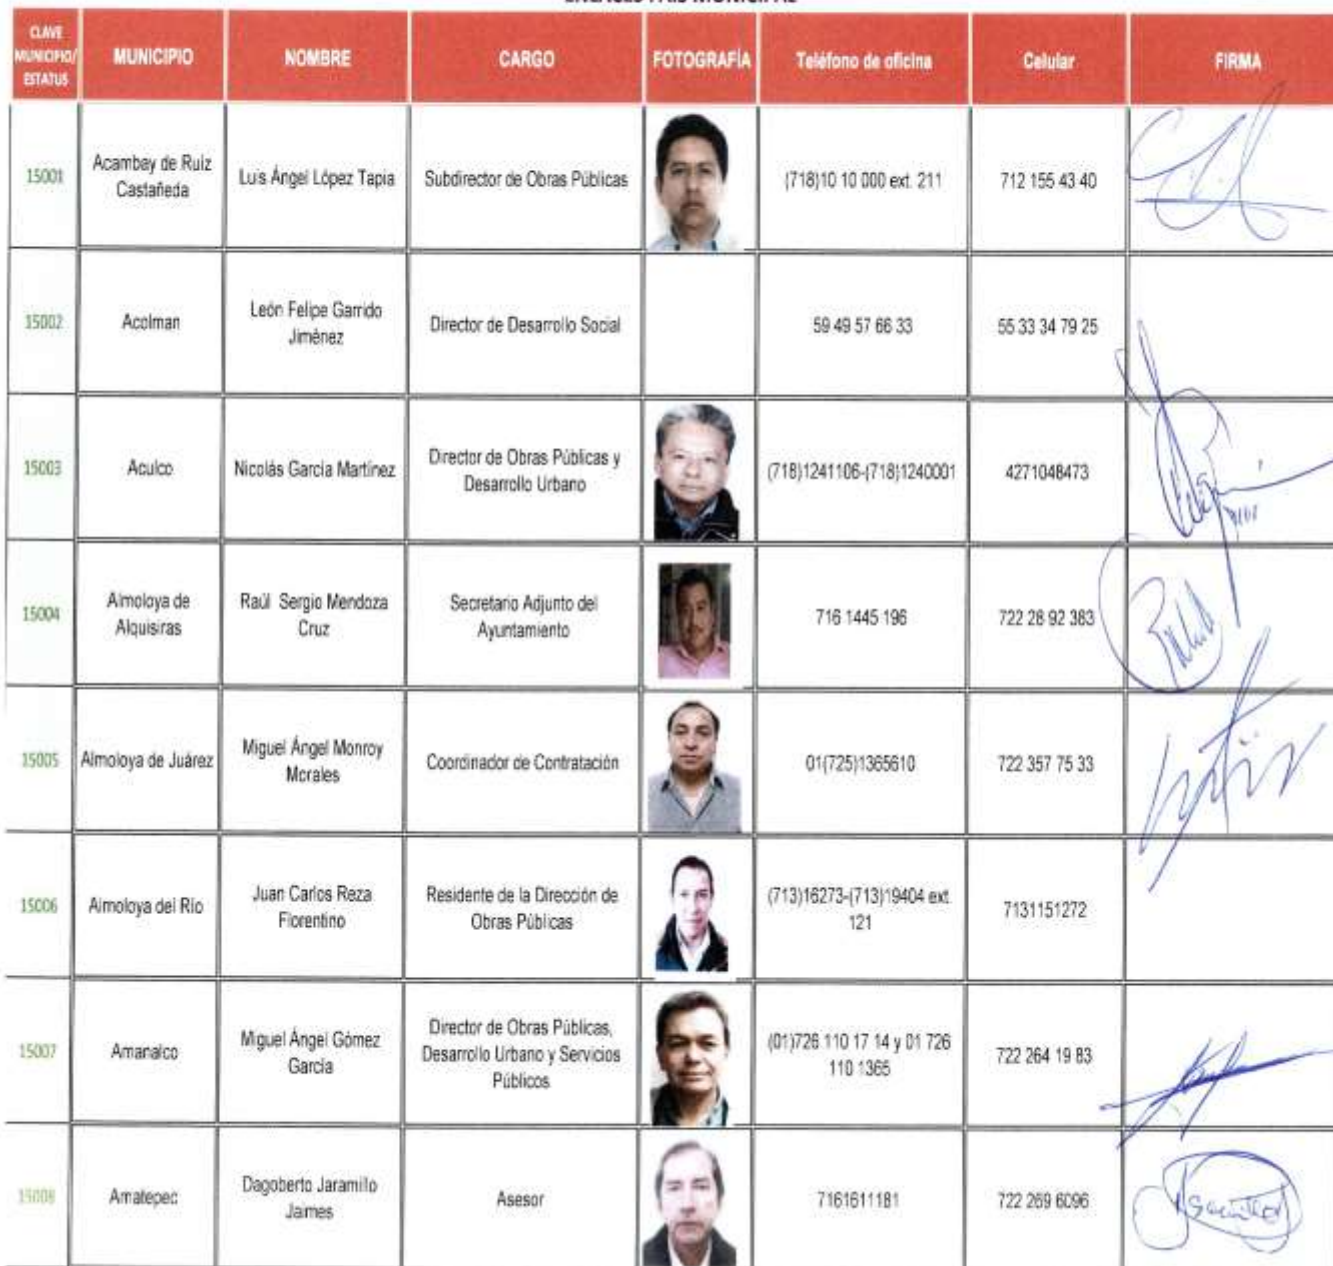 ENLACES FAIS MUNICIPAL
CLAVE MUNICIPIO/ ESTATUS
MUNICIPIO
NOMBRE
CARGO
FOTOGRAFÍA
Teléfono de oficina
Celular
FIRMA
15001
Acambay de Ruíz
Castañeda
Luis Ángel López Tapia
Subdirector de Obras Públicas
(718)10 10 000 ext. 211
712 155 43 40
15002
Acolman
León Felipe Garrido
Jiménez
Director de Desarrollo Social
59 49 57 66 33
55 33 34 79 25
15003
Aculco
Nicolás García Martínez
Director de Obras Públicas y
Desarrollo Urbano
(718)1241106-(718)1240001
4271048473
15004
Almoloya de
Alquisiras
Raúl Sergio Mendoza
Cruz
Secretario Adjunto del
Ayuntamiento
716 1445 196
722 28 92 383
15005
Almoloya de Juárez
Miguel Ángel Monroy
Morales
Coordinador de Contratación
01(725)1365610
722 357 75 33
15006
Almoloya del Río
Juan Carlos Reza
Florentino
Residente de la Dirección de
Obras Públicas
(713)16273-(713)19404 ext.
121
7131151272
15007
Amanalco
Miguel Ángel Gómez
García
Director de Obras Públicas,
Desarrollo Urbano y Servicios
Públicos
(01)726 110 17 14 y 01 726
110 1365
722 264 19 83
15008
Amatepec
Dagoberto Jaramillo
Jaimes
Asesor
7161611181
722 269 6096